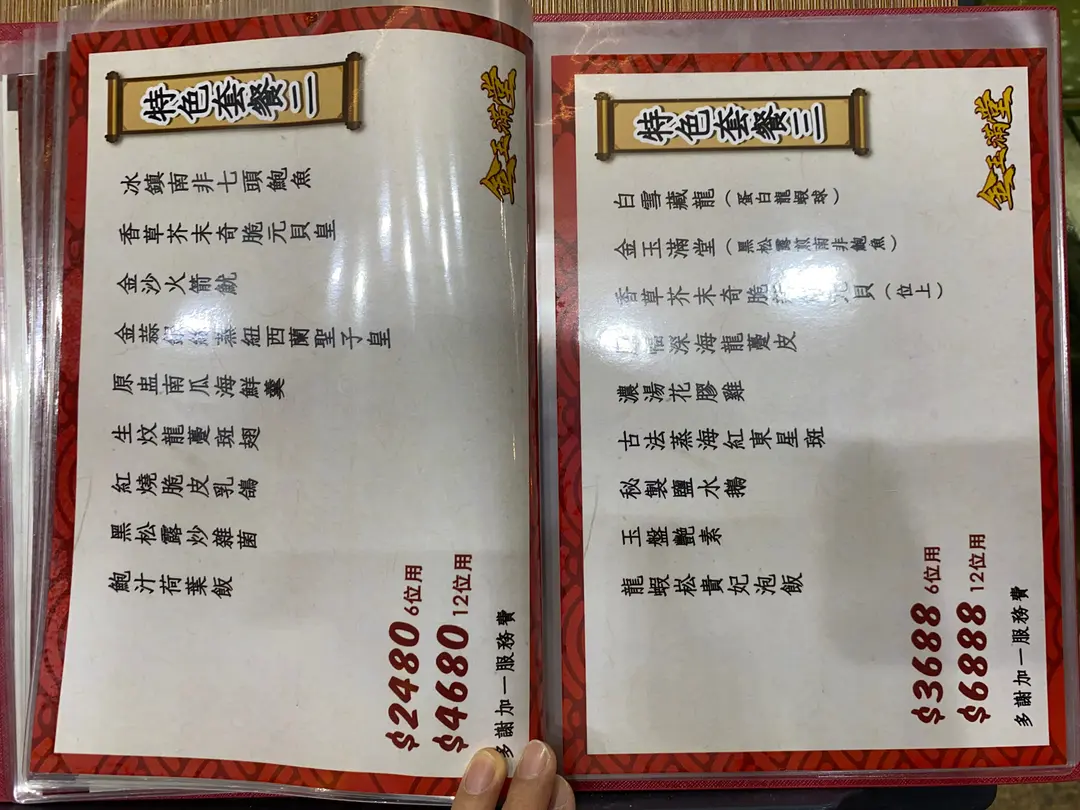 金玉滿堂
特色套餐二
冰鎮南非七頭鮑魚
香草芥末奇脆元貝皇
金沙火箭魷
金蒜銀絲蒸紐西蘭聖子皇
原盅南瓜海鮮羹
生炆龍躉斑翅
紅燒脆皮乳鴿
黑松露炒雜菌
鮑汁荷葉飯
$2480 6位用
$4680 12位用
多謝加一服務費
金玉滿堂
特色套餐三
白雪藏龍（蛋白龍蝦球）
金玉滿堂（黑松露煎南非鮑魚）
香草芥末奇脆 貝（位上）
深海龍躉皮
濃湯花膠雞
古法蒸海紅東星斑
秘製鹽水鵝
玉盤艷素
龍蝦崧貴妃泡飯
$3688 6位用
$6888 12位用
多謝加一服務費